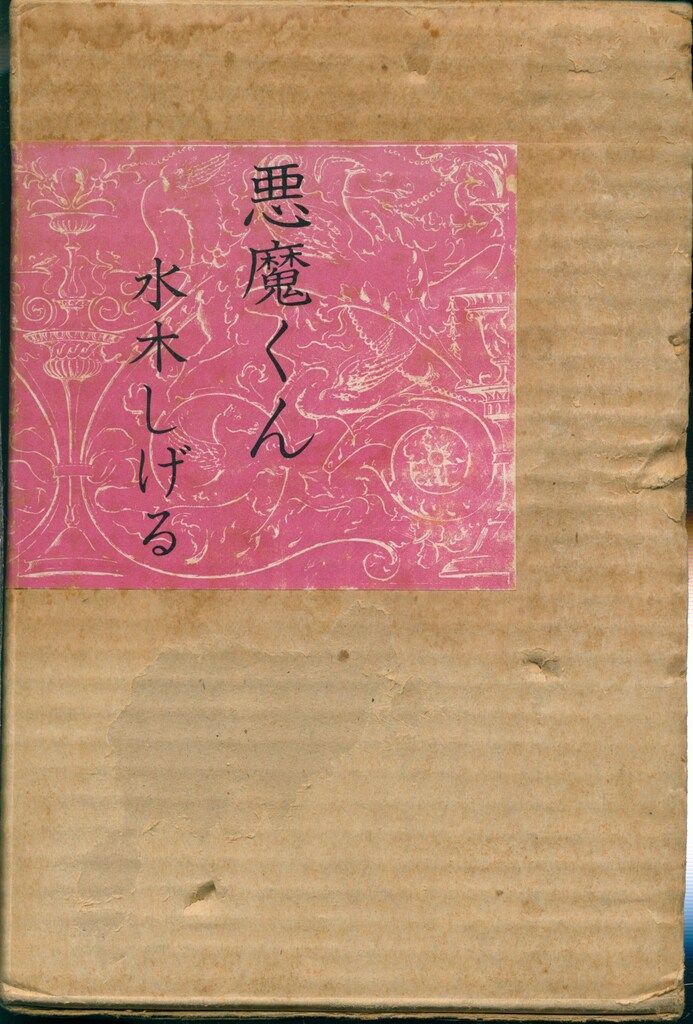 悪魔くん
水木しげる